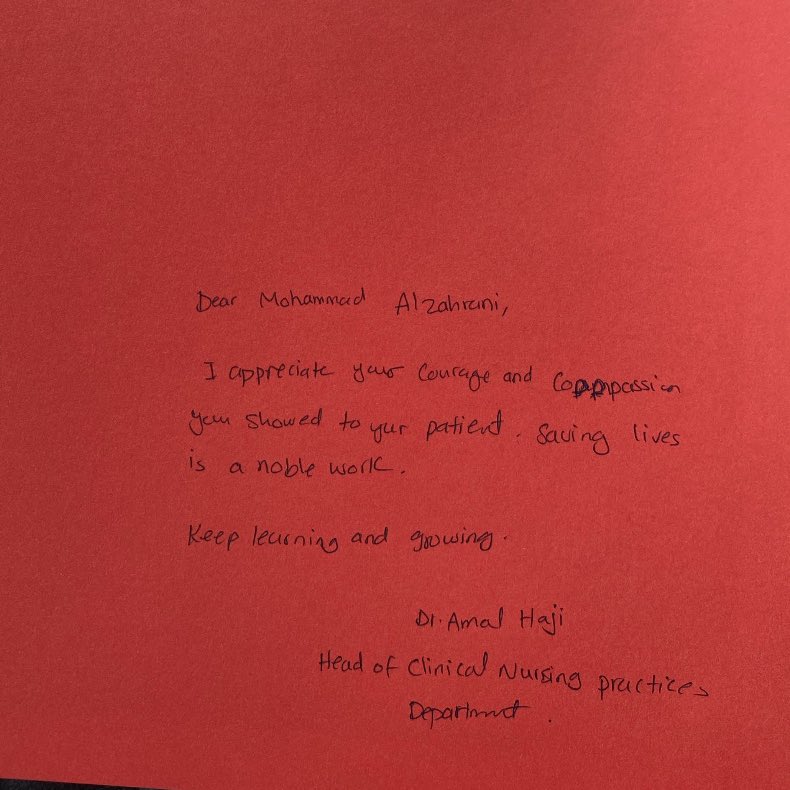 Dear Mohammad Alzahrani,
I appreciate your Courage and Compassion
you showed to your patient. Saving lives
is a noble work.
Keep learning and growing.
Dr. Amal Haji
Head of Clinical Nursing practices
Department.